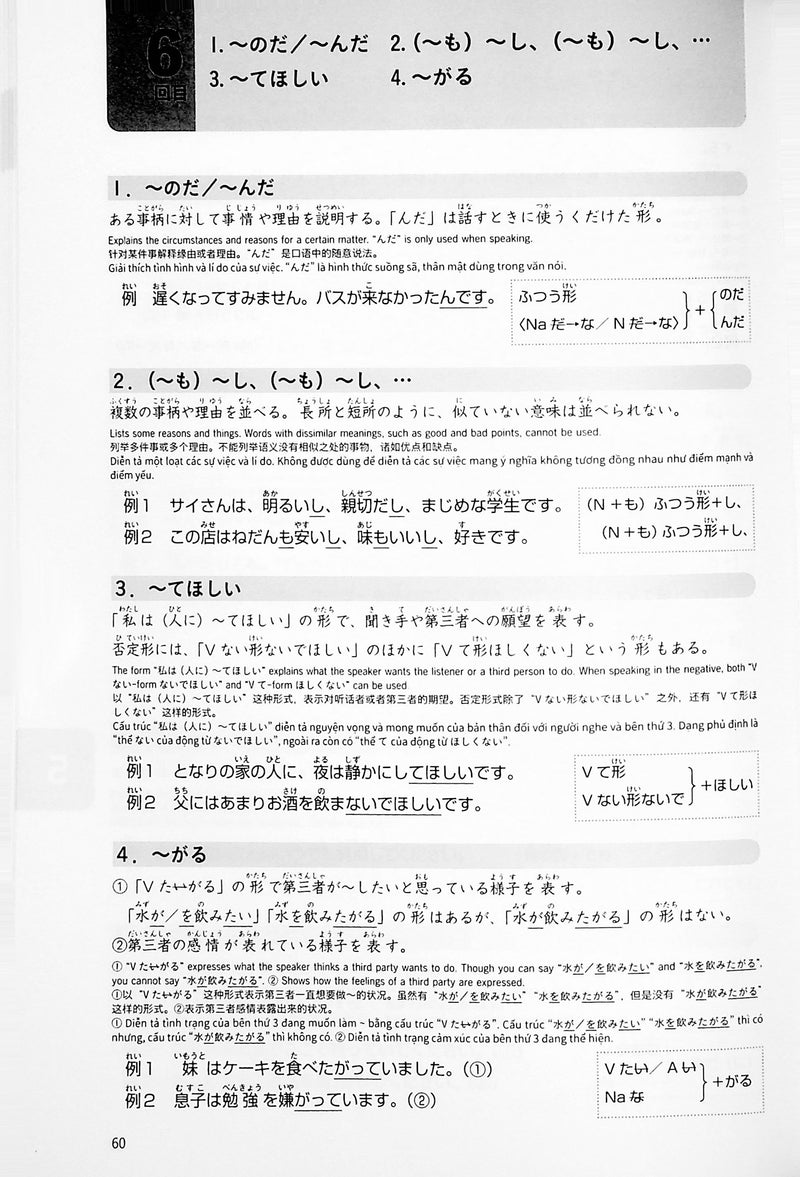 6
回目
1. ～のだ／～んだ 2.（～も）～し、（～も）～し、…
3. ～てほしい 4. ～がる
1. ～のだ／～んだ
ある事柄に対して事情や理由を説明する。「んだ」は話すときに使うくだけた形。
Explains the circumstances and reasons for a certain matter. “んだ” is only used when speaking.
针对某件事解释缘由或者理由。“んだ” 是口语中的随意说法。
Giải thích tình hình và lí do của sự việc. “んだ” là hình thức suồng sã, thân mật dùng trong văn nói.
例 遅くなってすみません。バスが来なかったんです。
ふつう形
〈Na だ→な／ N だ→な〉
＋
のだ
んだ
2.（～も）～し、（～も）～し、…
複数の事柄や理由を並べる。長所と短所のように、似ていない意味は並べられない。
Lists some reasons and things. Words with dissimilar meanings, such as good and bad points, cannot be used.
列举多件事或多个理由。不能列举语义没有相似之处的事物，诸如优点和缺点。
Diễn tả một loạt các sự việc và lí do. Không được dùng để diễn tả các sự việc mang ý nghĩa không tương đồng nhau như điểm mạnh và
điểm yếu.
例1 サイさんは、明るいし、親切だし、まじめな学生です。
例2 この店はねだんも安いし、味もいいし、好きです。
（N＋も）ふつう形＋し、
（N＋も）ふつう形＋し、
3. ～てほしい
「私は（人に）～てほしい」の形で、聞き手や第三者への願望を表す。
否定形には、「V ない形ないでほしい」のほかに「V て形ほしくない」という形もある。
The form “私は（人に）～てほしい” explains what the speaker wants the listener or a third person to do. When speaking in the negative, both “V
ない-form ないでほしい” and “V て-form ほしくない” can be used
以 “私は（人に）～てほしい” 这种形式，表示对听话者或者第三者的期望。否定形式除了 “V ない形ないでほしい” 之外，还有 “V て形ほ
しくない” 这样的形式。
Cấu trúc “私は（人に）～てほしい” diễn tả nguyện vọng và mong muốn của bản thân đối với người nghe và bên thứ 3. Dạng phủ định là
“thể ない của động từ ないでほしい”, ngoài ra còn có “thể て của động từ ほしくない”.
例1 となりの家の人に、夜は静かにしてほしいです。
例2 父にはあまりお酒を飲まないでほしいです。
V て形
V ない形ないで
＋ほしい
4. ～がる
①「V たいがる」の形で第三者が～したいと思っている様子を表す。
「水が／を飲みたい」「水を飲みたがる」の形はあるが、「水が飲みたがる」の形はない。
②第三者の感情が表れている様子を表す。
① “V たいがる” expresses what the speaker thinks a third party wants to do. Though you can say “水が／を飲みたい” and “水を飲みたがる”,
you cannot say “水が飲みたがる”. ② Shows how the feelings of a third party are expressed.
①以 “V たいがる” 这种形式表示第三者一直想要做～的状况。虽然有 “水が／を飲みたい” “水を飲みたがる”，但是没有 “水が飲みたがる”
这样的形式。②表示第三者感情表露出来的状况。
① Diễn tả tình trạng của bên thứ 3 đang muốn làm ~ bằng cấu trúc “V たいがる”. Cấu trúc “水が／を飲みたい” “水を飲みたがる” thì có
nhưng, cấu trúc “水が飲みたがる” thì không có. ② Diễn tả tình trạng cảm xúc của bên thứ 3 đang thể hiện.
例1 妹はケーキを食べたがっていました。（①）
例2 息子は勉強を嫌がっています。（②）
V たい／A い
Na な
＋がる
60